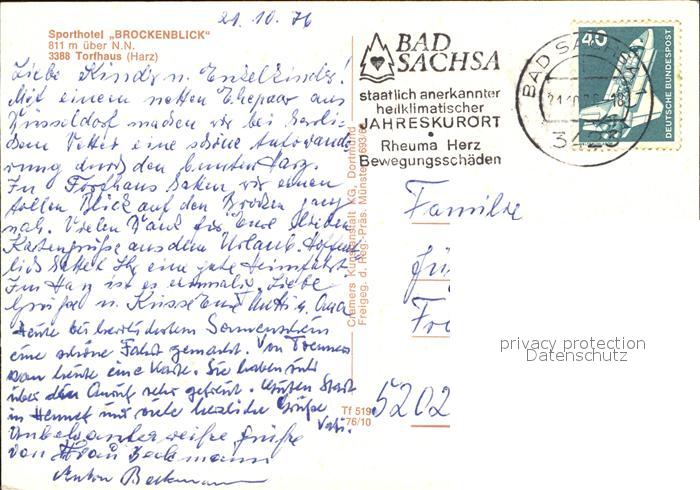 21.10.76
Sporthotel „BROCKENBLICK"
811 m über N.N.
3388 Torfhaus (Harz)
Liebe Kinder u. Enkelkinder!
Mit einem netten Ehepaar aus
Düsseldorf machen wir bei herrli-
chem Wetter eine schöne Autowande-
rung durch den bunten Harz.
In Torfhaus hatten wir einen
tollen Blick auf den Brocken ganz
nah. Vielen Dank für Eure lieben
Kartengrüße aus dem Urlaub. Hoffent-
lich hattet Ihr eine gute Heimfahrt.
Im Harz ist es einmalig. Liebe
Grüße u. Küsse Eure Mutti u. Oma
Heute bei herrlichstem Sonnenschein
eine schöne Fahrt gemacht. Von
kam heute eine Karte. Sie haben sich
über den Anruf sehr gefreut. Guten Start
in Hennef und viele herzliche Grüße
Vati.
Unbekannterweise Grüße
von Frau Beckmann
Anton Beckmann
Cramers Kunstanstalt KG, Dortmund
Freigeg. d. Reg.-Präs. Münster
Tf 519
76/10
BAD
SACHSA
staatlich anerkannter
heilklimatischer
JAHRESKURORT
Rheuma Herz
Bewegungsschäden
BAD SACHSA
21.10.76
3423
40
DEUTSCHE BUNDESPOST
Familie
5202
privacy protection
Datenschutz